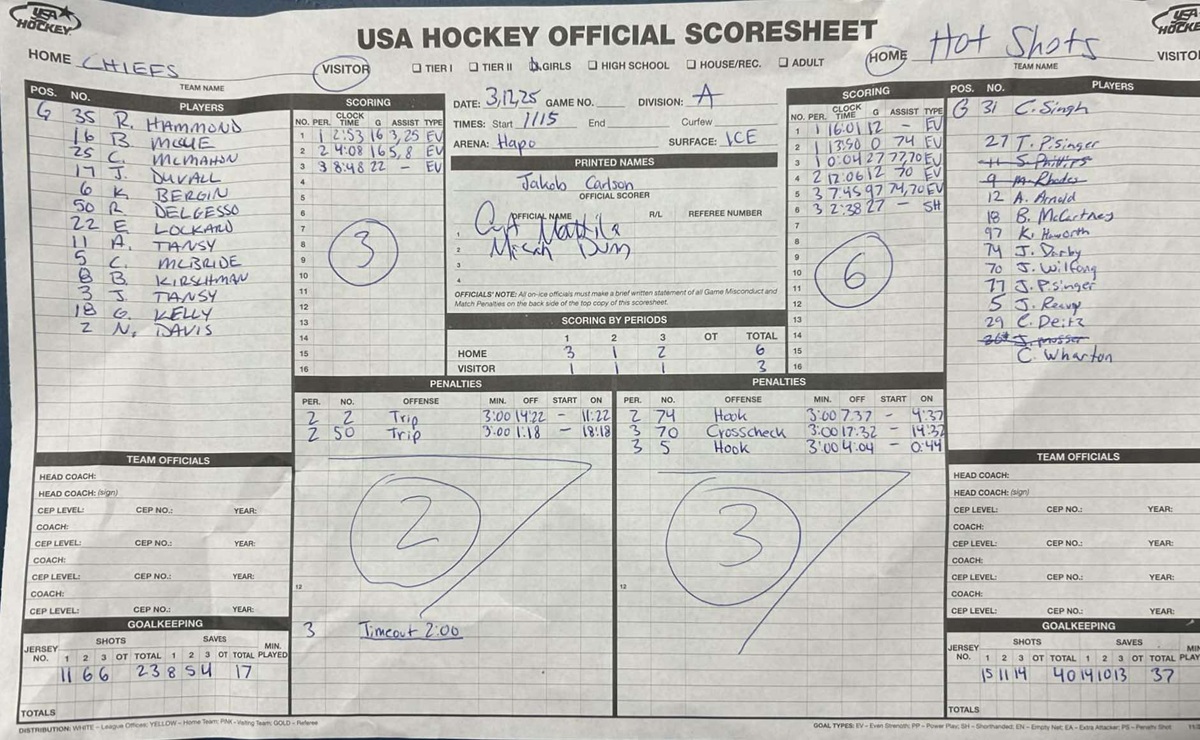 USA HOCKEY
USA HOCKEY OFFICIAL SCORESHEET
USA HOCKEY
HOME CHIEFS VISITOR
TEAM NAME
☐ TIER I ☐ TIER II ☐ GIRLS ☐ HIGH SCHOOL ☐ HOUSE/REC. ☐ ADULT
HOME Hot Shots VISITO
TEAM NAME
POS. NO. PLAYERS
G 35 R. HAMMOND
16 B. MCCUE
25 C. MCMAHON
17 J. DUVALL
6 K. BERGIN
50 R. DELGESSO
22 E. LOCKARD
11 A. TANSY
5 C. MCBRIDE
8 B. KIRSCHMAN
3 J. TANSY
18 G. KELLY
2 N. DAVIS
SCORING
NO. PER. CLOCK TIME G ASSIST TYPE
1 1 2:53 16 3,25 EV
2 2 4:08 16 5,8 EV
3 3 8:48 22 - EV
4
5
6
7
8
9
10
11
12
13
14
15
16
3
DATE: 3,12,25 GAME NO. DIVISION: A
TIMES: Start 1115 End Curfew
ARENA: Hapo SURFACE: ICE
PRINTED NAMES
Jakob Carlson
OFFICIAL SCORER
OFFICIAL NAME R/L REFEREE NUMBER
1 Mattila
2 Micah Dunn
3
4
OFFICIALS' NOTE: All on-ice officials must make a brief written statement of all Game Misconduct and
Match Penalties on the back side of the top copy of this scoresheet.
SCORING BY PERIODS
1 2 3 OT TOTAL
HOME 3 1 2 6
VISITOR 1 1 1 3
SCORING
NO. PER. CLOCK TIME G ASSIST TYPE
1 1 16:01 12 - EV
2 1 13:50 0 74 EV
3 1 0:04 27 77,70 EV
4 2 12:06 12 70 EV
5 3 7:45 97 74,70 EV
6 3 2:38 27 - SH
7
8
9
10
11
12
13
14
15
16
6
POS. NO. PLAYERS
G 31 C. Singh
27 T. Psinger
11 S. Phillips
9 M. Rhodes
12 A. Arnold
18 B. McCartney
97 K. Haworth
74 J. Darby
70 J. Wilfong
77 J. Psinger
5 J. Reavy
29 C. Deitz
36 J. Mosser
C. Wharton
PENALTIES
PER. NO. OFFENSE MIN. OFF START ON
2 2 Trip 3:00 14:22 - 11:22
2 50 Trip 3:00 1:18 - 18:18
12
2
3 Timeout 2:00
PENALTIES
PER. NO. OFFENSE MIN. OFF START ON
2 74 Hook 3:00 7:37 - 4:37
3 70 Crosscheck 3:00 17:32 - 14:32
3 5 Hook 3:00 4:04 - 0:44
12
3
TEAM OFFICIALS
HEAD COACH:
HEAD COACH: (sign)
CEP LEVEL: CEP NO.: YEAR:
COACH:
CEP LEVEL: CEP NO.: YEAR:
COACH:
CEP LEVEL: CEP NO.: YEAR:
COACH:
CEP LEVEL: CEP NO.: YEAR:
GOALKEEPING
SHOTS SAVES
JERSEY NO. 1 2 3 OT TOTAL 1 2 3 OT TOTAL MIN. PLAYED
11 6 6 23 8 5 4 17
TOTALS
TEAM OFFICIALS
HEAD COACH:
HEAD COACH: (sign)
CEP LEVEL: CEP NO.: YEAR:
COACH:
CEP LEVEL: CEP NO.: YEAR:
COACH:
CEP LEVEL: CEP NO.: YEAR:
COACH:
CEP LEVEL: CEP NO.: YEAR:
GOALKEEPING
SHOTS SAVES
JERSEY NO. 1 2 3 OT TOTAL 1 2 3 OT TOTAL MIN PLAY
15 11 14 40 14 10 13 37
TOTALS
DISTRIBUTION: WHITE – League Offices; YELLOW – Home Team; PINK – Visiting Team; GOLD – Referee
GOAL TYPES: EV – Even Strength; PP – Power Play; SH – Shorthanded; EN – Empty Net; EA – Extra Attacker; PS – Penalty Shot